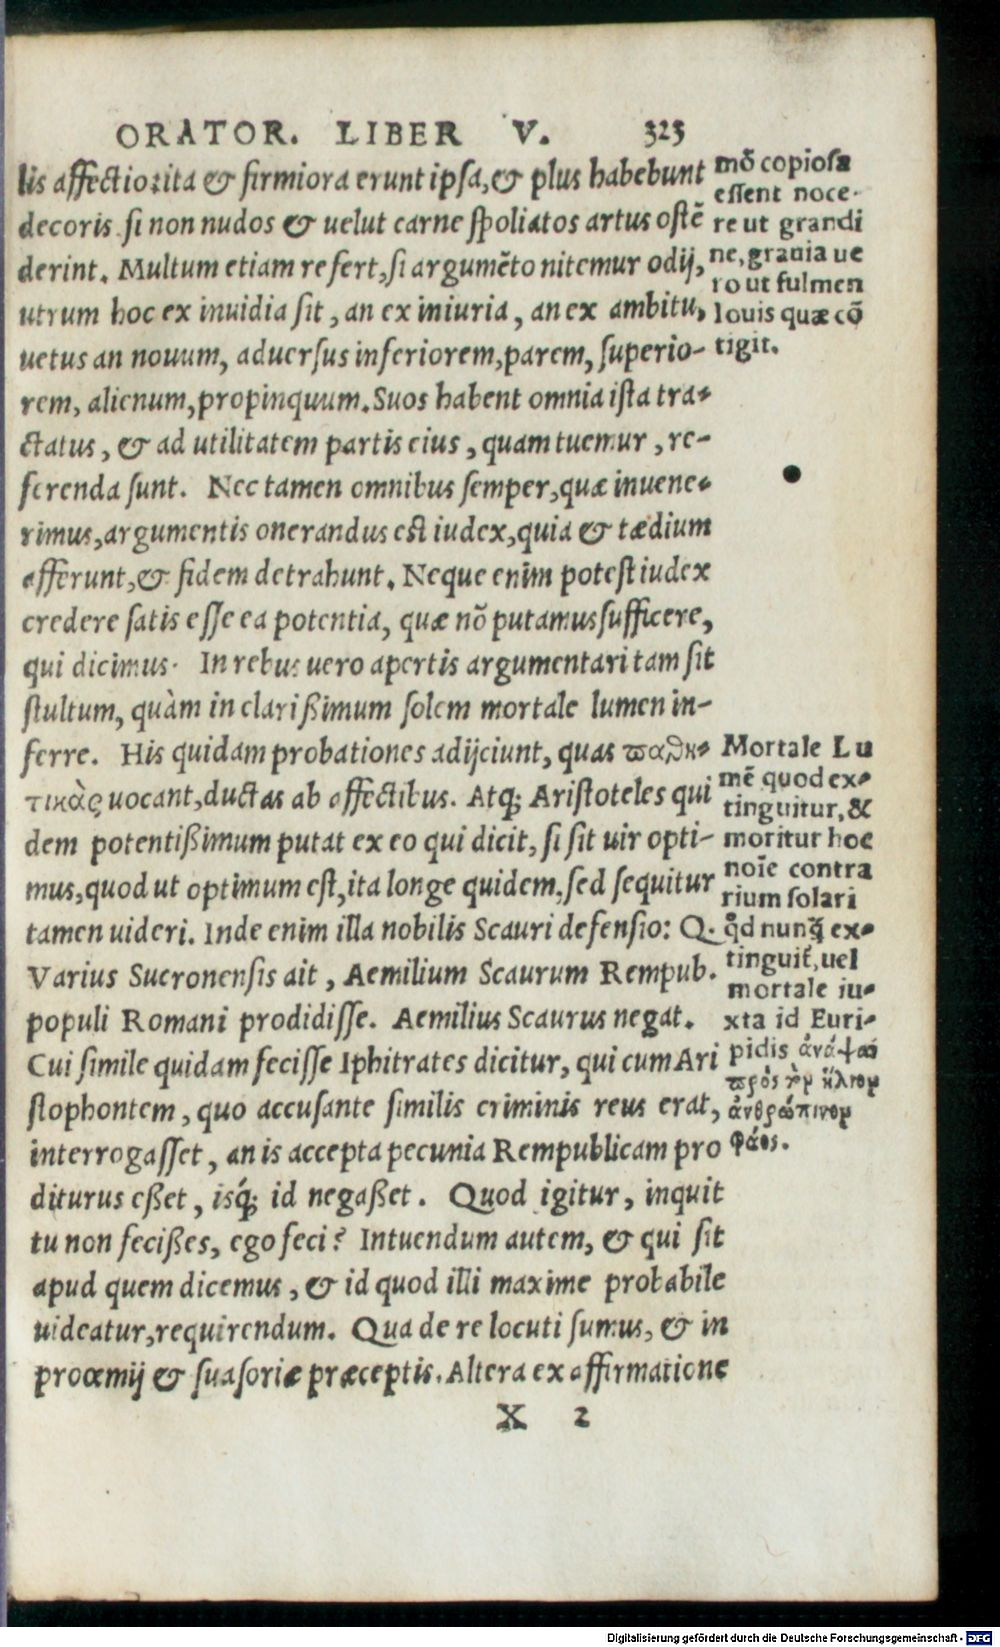 ORATOR. LIBER V. 323
lis affectio: ita & firmiora erunt ipsa, & plus habebunt
decoris si non nudos & uelut carne spoliatos artus ostē
derint. Multum etiam refert, si argumēto nitemur odij,
utrum hoc ex inuidia sit, an ex iniuria, an ex ambitu,
uetus an nouum, aduersus inferiorem, parem, superio-
rem, alienum, propinquum. Suos habent omnia ista tra-
ctatus, & ad utilitatem partis eius, quam tuemur, re-
ferenda sunt. Nec tamen omnibus semper, quæ inuene-
rimus, argumentis onerandus est iudex, quia & tædium
afferunt, & fidem detrahunt. Neque enim potest iudex
credere satis esse ea potentia, quæ nō putamus sufficere,
qui dicimus. In rebus uero apertis argumentari tam sit
stultum, quàm in clarißimum solem mortale lumen in-
ferre. His quidam probationes adijciunt, quas παθη-
τικὰς uocant, ductas ab affectibus. Atq; Aristoteles qui
dem potentißimum putat ex eo qui dicit, si sit uir opti-
mus, quod ut optimum est, ita longe quidem, sed sequitur
tamen uideri. Inde enim illa nobilis Scauri defensio: Q.
Varius Sucronensis ait, Aemilium Scaurum Rempub.
populi Romani prodidisse. Aemilius Scaurus negat.
Cui simile quidam fecisse Iphitrates dicitur, qui cum Ari
stophontem, quo accusante similis criminis reus erat,
interrogasset, an is accepta pecunia Rempublicam pro
diturus eßet, isq́; id negaßet. Quod igitur, inquit
tu non fecißes, ego feci? Intuendum autem, & qui sit
apud quem dicemus, & id quod illi maxime probabile
uideatur, requirendum. Qua de re locuti sumus, & in
proœmij & suasoriæ præceptis. Altera ex affirmatione
X 2
mō copiosa
essent noce-
re ut grandi
ne, grauia ue
ro ut fulmen
Iouis quæ cō
tigit.
Mortale Lu
mē quod ex-
tinguitur, &
moritur hoc
noīe contra
rium solari
qd nunq̄ ex-
tinguit̄, uel
mortale iu-
xta id Euri-
pidis ἀνάψαι
πρὸς τὸν ἥλιον
ἀνθρώπινον
φάος.
Digitalisierung gefördert durch die Deutsche Forschungsgemeinschaft - DFG